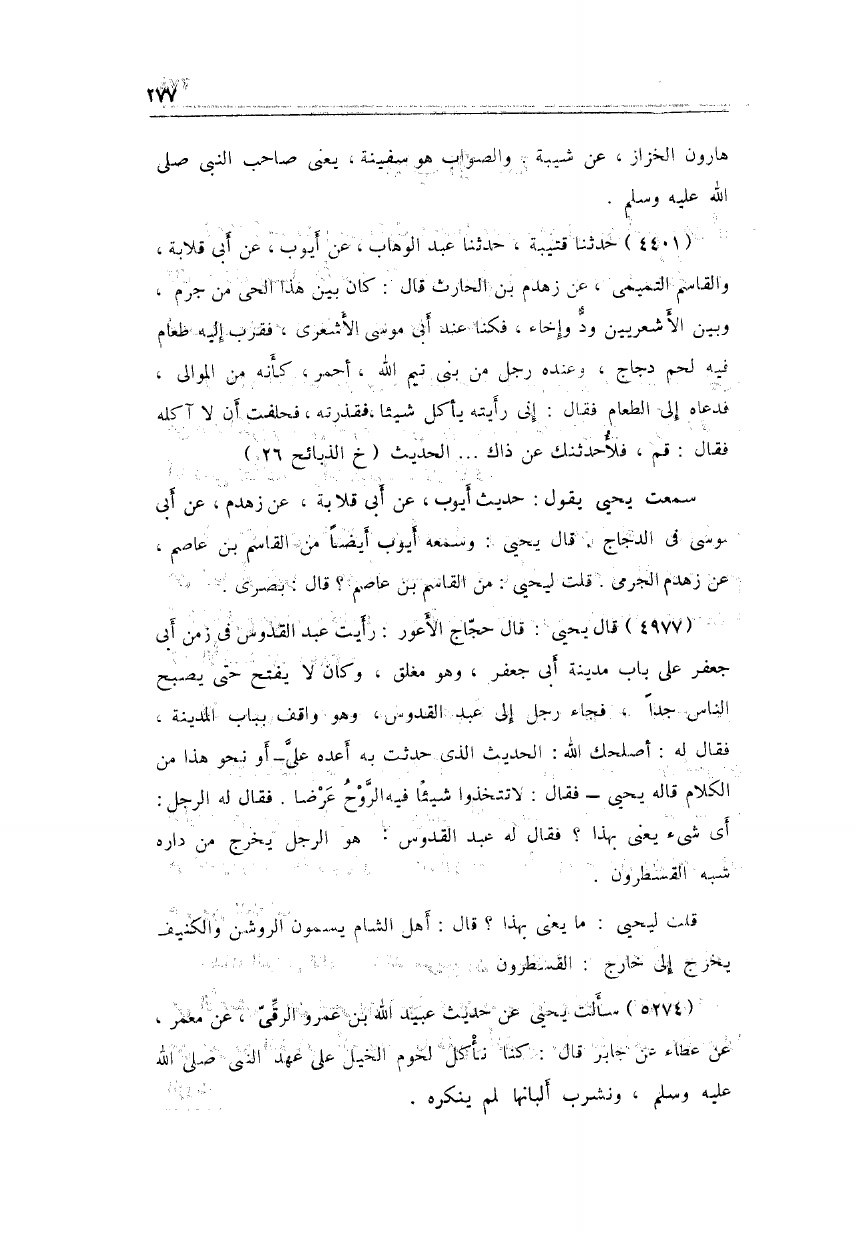 ٢٧٧
هارون الخزاز ، عن شيبة . والصواب هو سفينة ، يعنى صاحب النبى صلى
الله عليه وسلم .
( ٤٤٠١ ) حدثنا قتيبة ، حدثنا عبد الوهاب ، عن أيوب ، عن أبى قلابة ،
والقاسم التميمى ، عن زهدم بن الحارث قال : كان بين هذا الحى من جرم ،
وبين الأشعريين ودٌّ وإخاء ، فكنا عند أبى موسى الأشعرى ، فقرب إليه طعام
فيه لحم دجاج ، وعنده رجل من بنى تيم الله ، أحمر ، كأنه من الموالى ،
فدعاه إلى الطعام فقال : إنى رأيته يأكل شيئا ، فقذرته ، فحلفت أن لا آكله
فقال : قم ، فلأُحدثنك عن ذاك ... الحديث ( خ الذبائح ٢٦ )
سمعت يحيى يقول : حديث أيوب ، عن أبى قلابة ، عن زهدم ، عن أبى
موسى فى الدجاج . قال يحيى : وسمعه أيوب أيضاً من القاسم بن عاصم ،
عن زهدم الجرمى . قلت ليحيى : من القاسم بن عاصم ؟ قال : بصرى .
( ٤٩٧٧ ) قال يحيى : قال حجّاج الأعور : رأيت عبد القدوس فى زمن أبى
جعفر على باب مدينة أبى جعفر ، وهو مغلق ، وكان لا يفتح حتى يصبح
الناس جداً ، فجاء رجل إلى عبد القدوس ، وهو واقف بباب المدينة ،
فقال له : أصلحك الله : الحديث الذى حدثت به أعده علىَّ - أو نحو هذا من
الكلام قاله يحيى - فقال : لاتتخذوا شيئًا فيه الرَّوْحُ عَرْضا . فقال له الرجل :
أى شىء يعنى بهذا ؟ فقال له عبد القدوس : هو الرجل يخرج من داره
شبه القسطرون .
قلت ليحيى : ما يعنى بهذا ؟ قال : أهل الشام يسمون الروشن والكنيف
يخرج إلى خارج : القسطرون
( ٥٢٧٤ ) سألت يحيى عن حديث عبيد الله بن عمرو الرقِّىّ ، عن معمر ،
عن عطاء عن جابر قال : كنا نأكل لحوم الخيل على عهد النبى صلى الله
عليه وسلم ، ونشرب ألبانها لم ينكره .